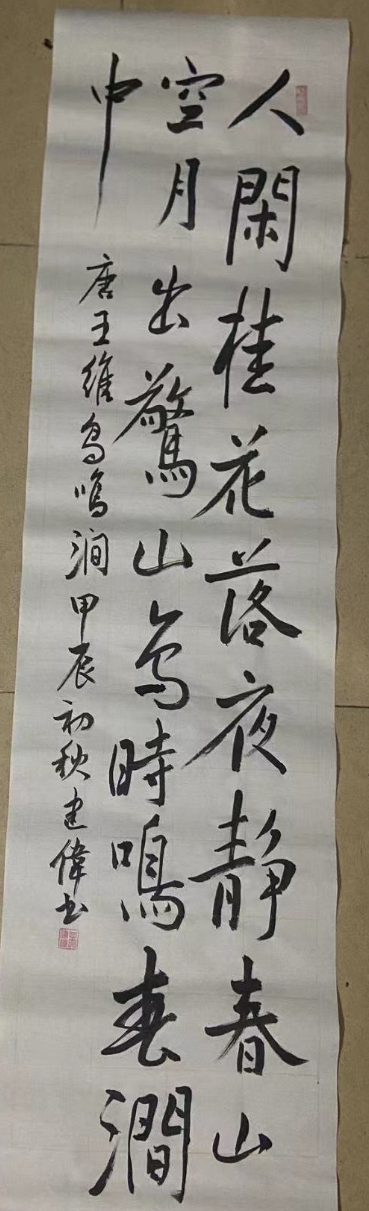 人閑桂花落夜静春山
空月出驚山鸟時鳴春澗
中
唐王維鸟鸣涧甲辰初秋建偉书